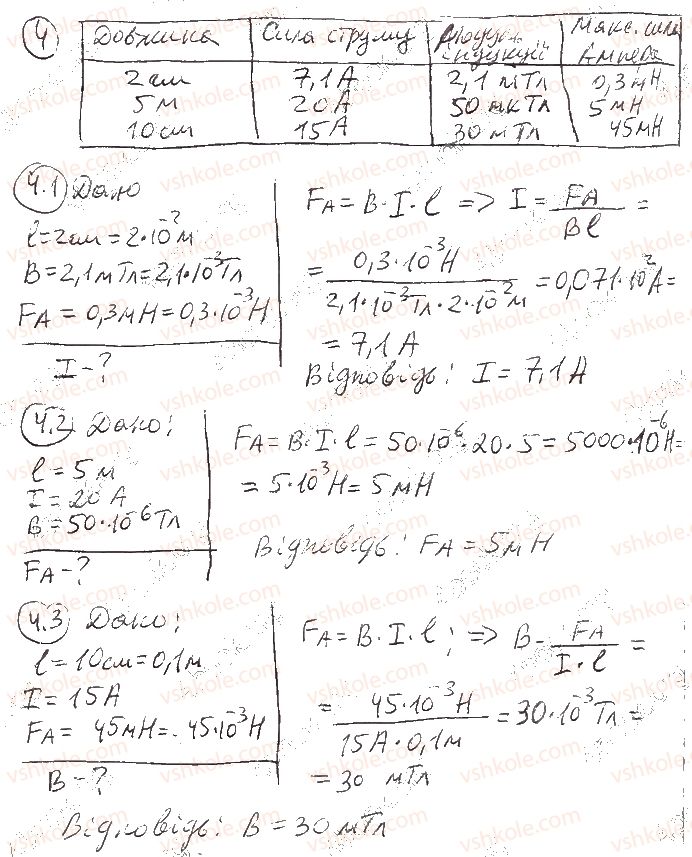 4
Довжина | Сила струму | Модуль індукції | Макс. сила Ампера
2см | 7,1 А | 2,1 мТл | 0,3 мН
5 м | 20 А | 50 мкТл | 5 мН
10 см | 15 А | 30 мТл | 45 мН
4.1 Дано
l = 2см = 2·10⁻² м
B = 2,1 мТл = 2,1·10⁻³ Тл
FА = 0,3 мН = 0,3·10⁻³ Н
I - ?
FА = B · I · l => I = FА / Bl =
= 0,3·10⁻³ Н / 2,1·10⁻³ Тл · 2·10⁻² м = 0,071·10² А =
= 7,1 А
Відповідь: I = 7,1 А
4.2 Дано:
l = 5 м
I = 20 А
B = 50·10⁻⁶ Тл
FА - ?
FА = B · I · l = 50·10⁻⁶·20·5 = 5000·10⁻⁶ Н =
= 5·10⁻³ Н = 5 мН
Відповідь: FА = 5 мН
4.3 Дано:
l = 10см = 0,1м
I = 15 А
FА = 45мН = 45·10⁻³ Н
B - ?
FА = B · I · l; => B - FА / I · l =
= 45·10⁻³ Н / 15А · 0,1м = 30·10⁻³ Тл =
= 30 мТл
Відповідь: B = 30 мТл
vshkole.com